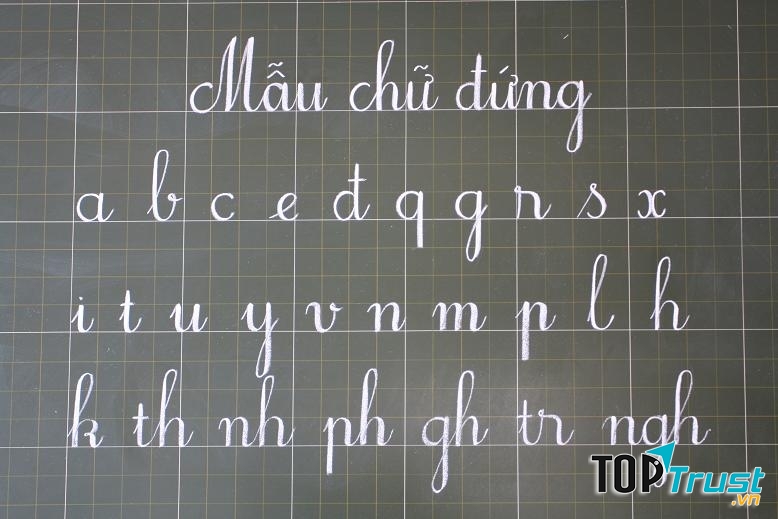 Mẫu chữ đứng
a b c e đ q g r s x
i t u y v n m p l h
k th nh ph gh tr ngh
TOPTrust.vn